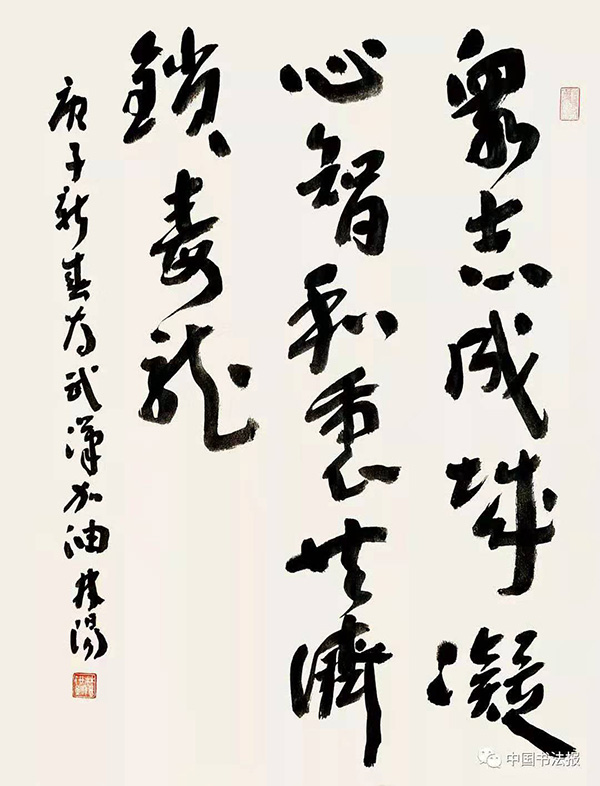 眾志成城凝
心智和衷共濟
鎖毒龍
庚子新春为武漢加油
中国书法报